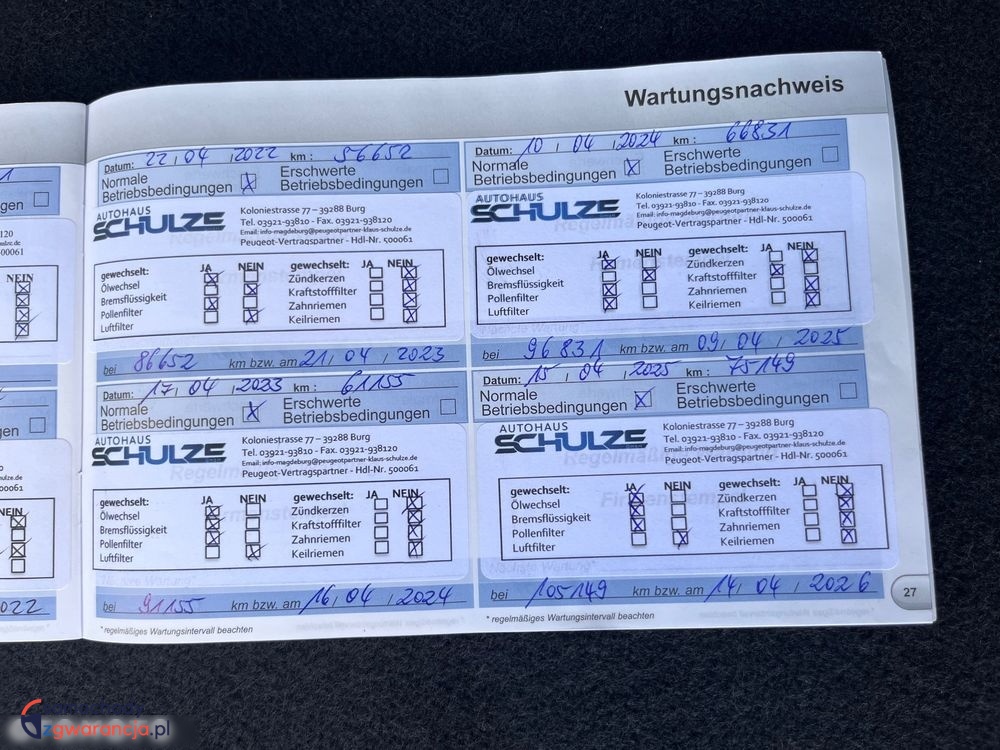 Wartungsnachweis
Datum: 22,04,2022 km: 56652
Normale Betriebsbedingungen X Erschwerte Betriebsbedingungen
AUTOHAUS
SCHULZE
Koloniestrasse 77 – 39288 Burg
Tel. 03921-93810 - Fax. 03921-938120
Email: info-magdeburg@peugeotpartner-klaus-schulze.de
Peugeot-Vertragspartner - Hdl-Nr. 500061
gewechselt: JA NEIN gewechselt: JA NEIN
Ölwechsel Zündkerzen
Bremsflüssigkeit Kraftstofffilter
Pollenfilter Zahnriemen
Luftfilter Keilriemen
bei 86652 km bzw. am 21,04,2023
Datum: 10,04,2024 km: 66831
Normale Betriebsbedingungen X Erschwerte Betriebsbedingungen
AUTOHAUS
SCHULZE
Koloniestrasse 77 – 39288 Burg
Tel. 03921-93810 - Fax. 03921-938120
Email: info-magdeburg@peugeotpartner-klaus-schulze.de
Peugeot-Vertragspartner - Hdl-Nr. 500061
gewechselt: JA NEIN gewechselt: JA NEIN
Ölwechsel Zündkerzen
Bremsflüssigkeit Kraftstofffilter
Pollenfilter Zahnriemen
Luftfilter Keilriemen
bei 96831 km bzw. am 09,04,2025
Datum: 17,04,2023 km: 61155
Normale Betriebsbedingungen X Erschwerte Betriebsbedingungen
AUTOHAUS
SCHULZE
Koloniestrasse 77 – 39288 Burg
Tel. 03921-93810 - Fax. 03921-938120
Email: info-magdeburg@peugeotpartner-klaus-schulze.de
Peugeot-Vertragspartner - Hdl-Nr. 500061
gewechselt: JA NEIN gewechselt: JA NEIN
Ölwechsel Zündkerzen
Bremsflüssigkeit Kraftstofffilter
Pollenfilter Zahnriemen
Luftfilter Keilriemen
bei 91155 km bzw. am 16,04,2024
* regelmäßiges Wartungsintervall beachten
Datum: 15,04,2025 km: 75149
Normale Betriebsbedingungen X Erschwerte Betriebsbedingungen
AUTOHAUS
SCHULZE
Koloniestrasse 77 – 39288 Burg
Tel. 03921-93810 - Fax. 03921-938120
Email: info-magdeburg@peugeotpartner-klaus-schulze.de
Peugeot-Vertragspartner - Hdl-Nr. 500061
gewechselt: JA NEIN gewechselt: JA NEIN
Ölwechsel Zündkerzen
Bremsflüssigkeit Kraftstofffilter
Pollenfilter Zahnriemen
Luftfilter Keilriemen
bei 105149 km bzw. am 14,04,2026
* regelmäßiges Wartungsintervall beachten
27
NEIN
NEIN
2022
zgwarancja.pl